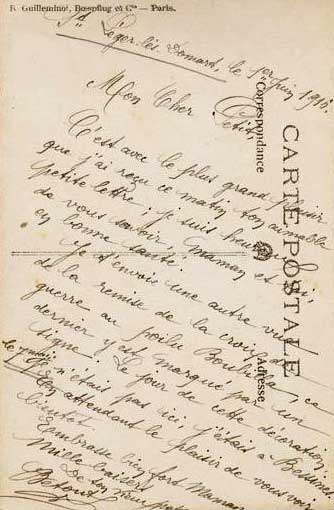 R. Guilleminot, Bœspflug et Cie — Paris.
St Léger-lès-Domart, le 1er juin 1916.
Mon Cher Petit,
C'est avec le plus grand plaisir
que j'ai reçu ce matin ton aimable
petite lettre; je suis heureux
de vous savoir, Maman et toi,
en bonne santé.
Je t'envoie une autre vue
de la remise de la croix de
guerre au poilu ; ce
dernier y est marqué par un
signe. Le jour de cette décoration
le
je n'étais pas ici, j'étais à
En attendant le plaisir de vous voir
bientôt
Embrasse bien fort Maman
Mille baisers
De ton
CARTE POSTALE
Correspondance
Adresse